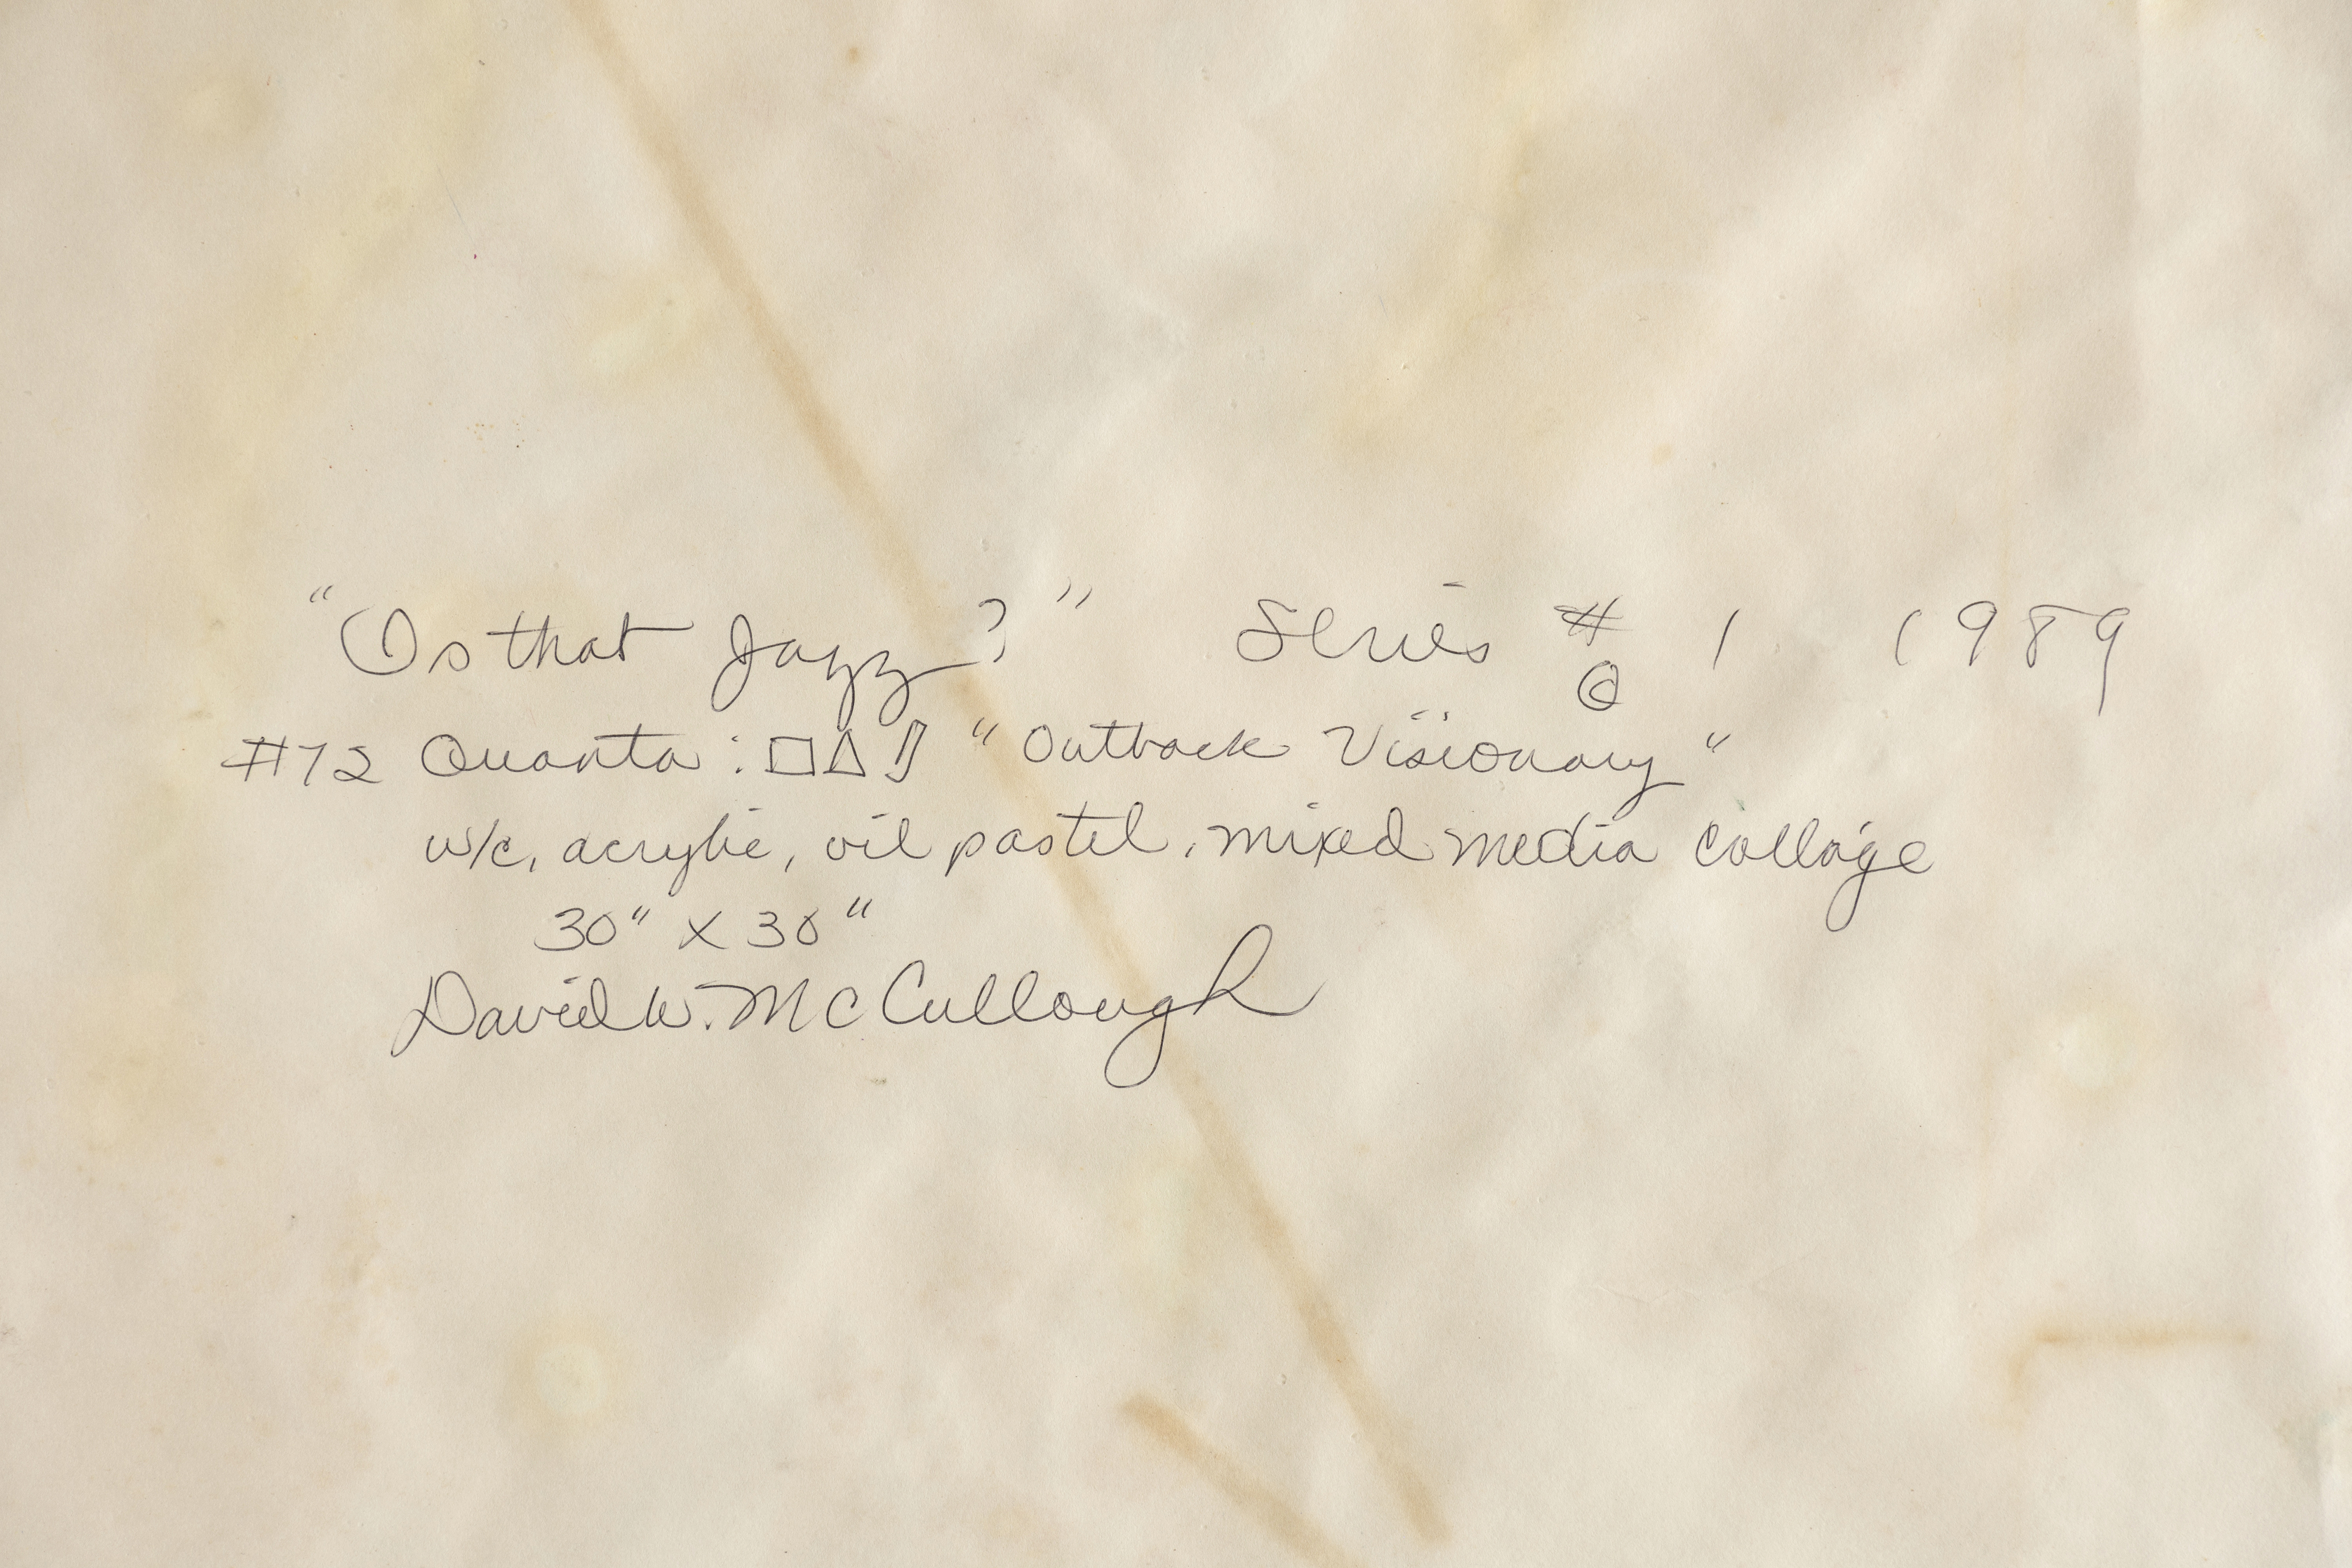 "Is that Jazz?" Series # 1 1989
©
#72 Quanta: □△▯ "Outback Visionary"
w/c, acrylic, oil pastel, mixed media collage
30" x 30"
David W. McCullough